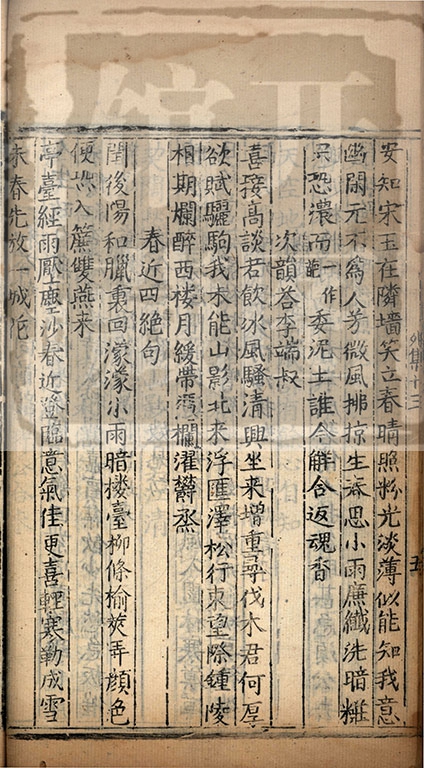 外集十三
五
安知宋玉在隣墻笑立春晴照粉光淡薄似能知我意
幽閑元不爲人芳微風拂掠生春思小雨廉纖洗暗粧
只恐濃而一作葩委泥土誰令解合返魂香
次韻荅李端叔
喜接高談若飲冰風騷清興坐來增重尋伐木君何厚
欲賦驪駒我未能山影北來浮匯澤松行東望際鍾陵
相期爛醉西楼月緩帶馮欄濯欝蒸
春近四絶句
閏後陽和臘裏回濛濛小雨暗楼臺柳條榆莢弄顔色
便恐入簾雙燕來
亭臺經雨壓塵沙春近登臨意氣佳更喜輕寒勒成雪
未春先放一城花